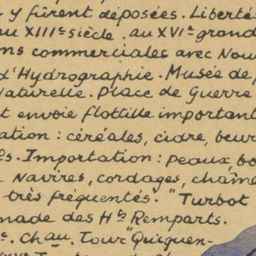 y fûrent déposées. Liberté
au XIIIe siècle. au XVIe grand
ns commerciales avec Nou
d'Hydrographie. Musée de
Naturelle. Place de Guerre
t envoie flottille important
ation: céréales, cidre, beur
s. Importation: peaux, bo
Navires, cordages, chaîne
très fréquentés. "Turbot
nade des Hts Remparts.
Chau. Tour "Quiquen-